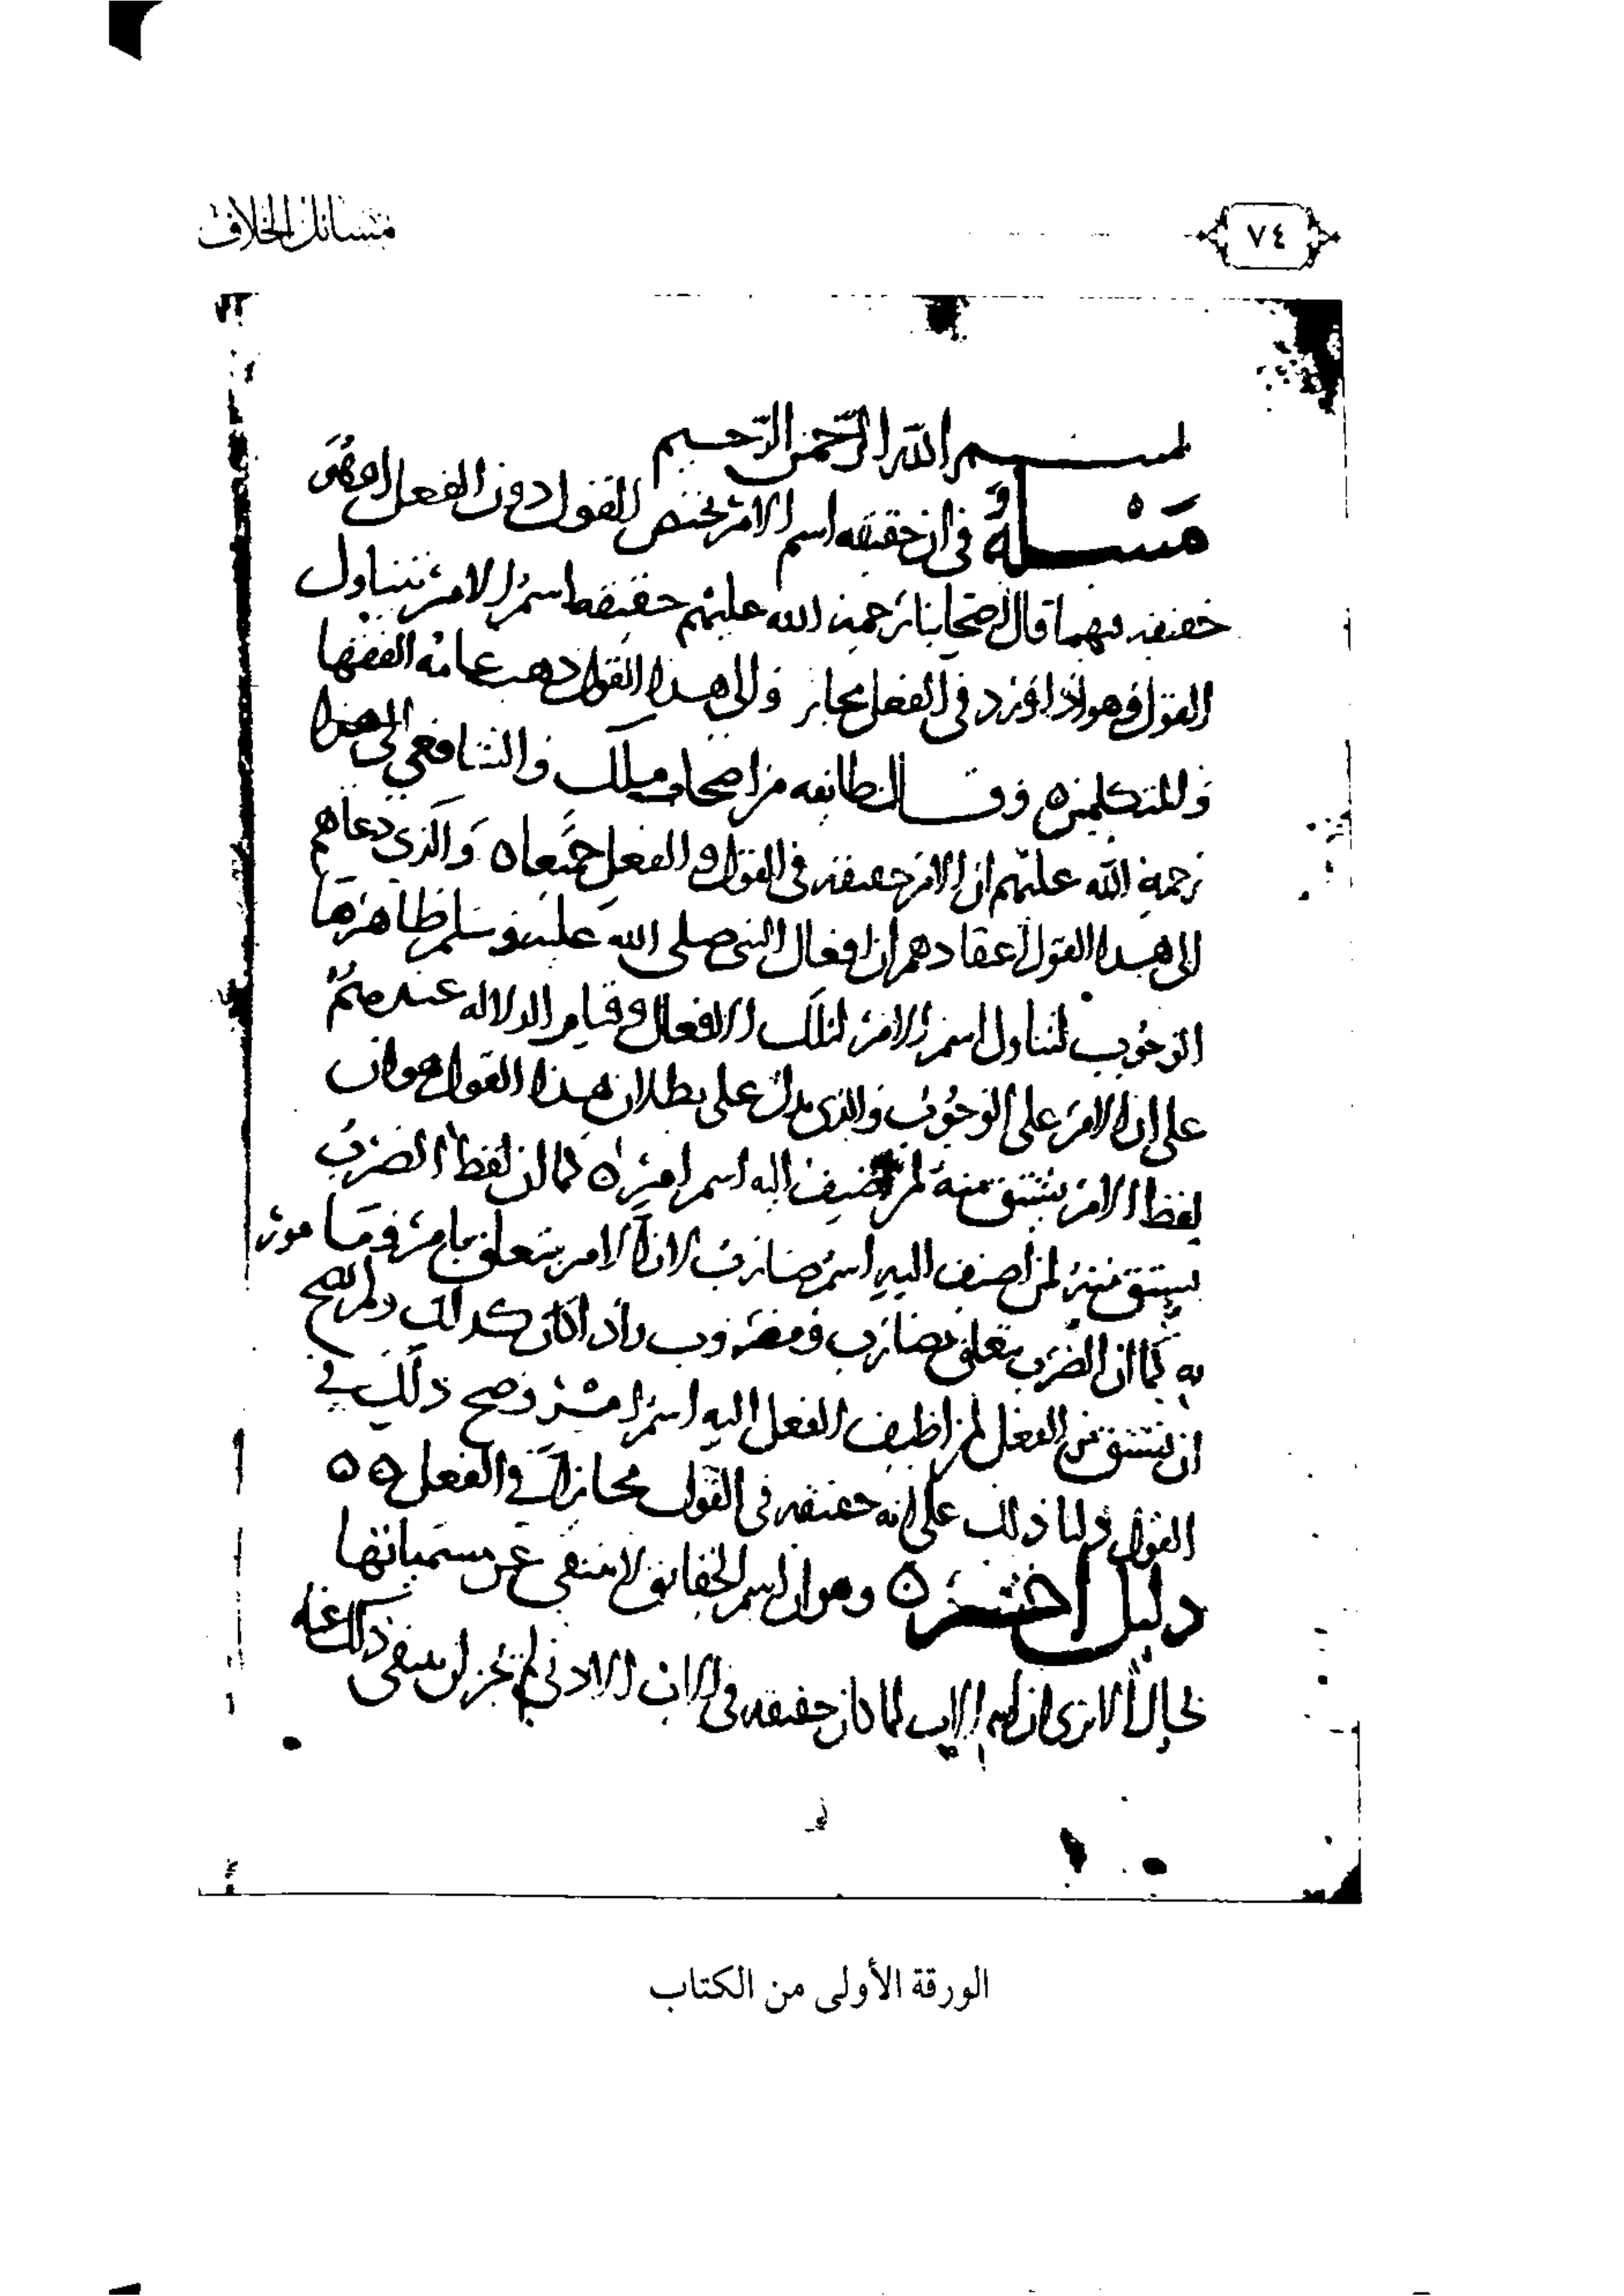 مسائل الخلاف
٧٤
بسم الله الرحمن الرحيم
مسله في ان حقيقه اسم الامر يختص القول دون الفعل ام هو
حقيقه فيهما قال اصحابنا رحمة الله عليهم حقيقه اسم الامر يتناول
القول وهو اذا اورد في الفعل مجاز والى هذا القول ذهب عامة الفقها
والمتكلمين ٥ وقال طايفه من اصحاب ملك والشافعي الى هذا
رحمة الله عليهم ان الامر حقيقه في القول والفعل جميعا ٥ والذي دعاهم
الى هذا القول اعتقادهم ان افعال النبي صلى الله عليه وسلم ظاهرها
الوجوب لتناول اسم الامر لتلك الافعال وقيام الدلاله عندهم
على ان الامر على الوجوب والذي يدل على بطلان هذا القول هو ان
لفظ الامر يشتق منه لمن اضيف اليه اسم امر ٥ كما ان لفظ الضرب
يشتق منه لمن اضيف اليه اسم ضارب لان الامر يتعلق بامر وما مور
به كما ان الضرب يتعلق بضارب ومضروب واذا كان كذلك ولم يصح
ان يشتق من الفعل لمن اظيف الفعل اليه اسم امر وصح ذلك في
القول دلنا ذلك على انه حقيقه في القول مجاز في الفعل ٥ ٥
دليل اخر ٥ وهو ان اسم الحقايق لا ينتفي عن مسمياتها
بحال الا ترى ان اسم الاب لما كان حقيقه في الاب الادنى لم يجز ان ينفى ذلك عنه
الورقة الأولى من الكتاب